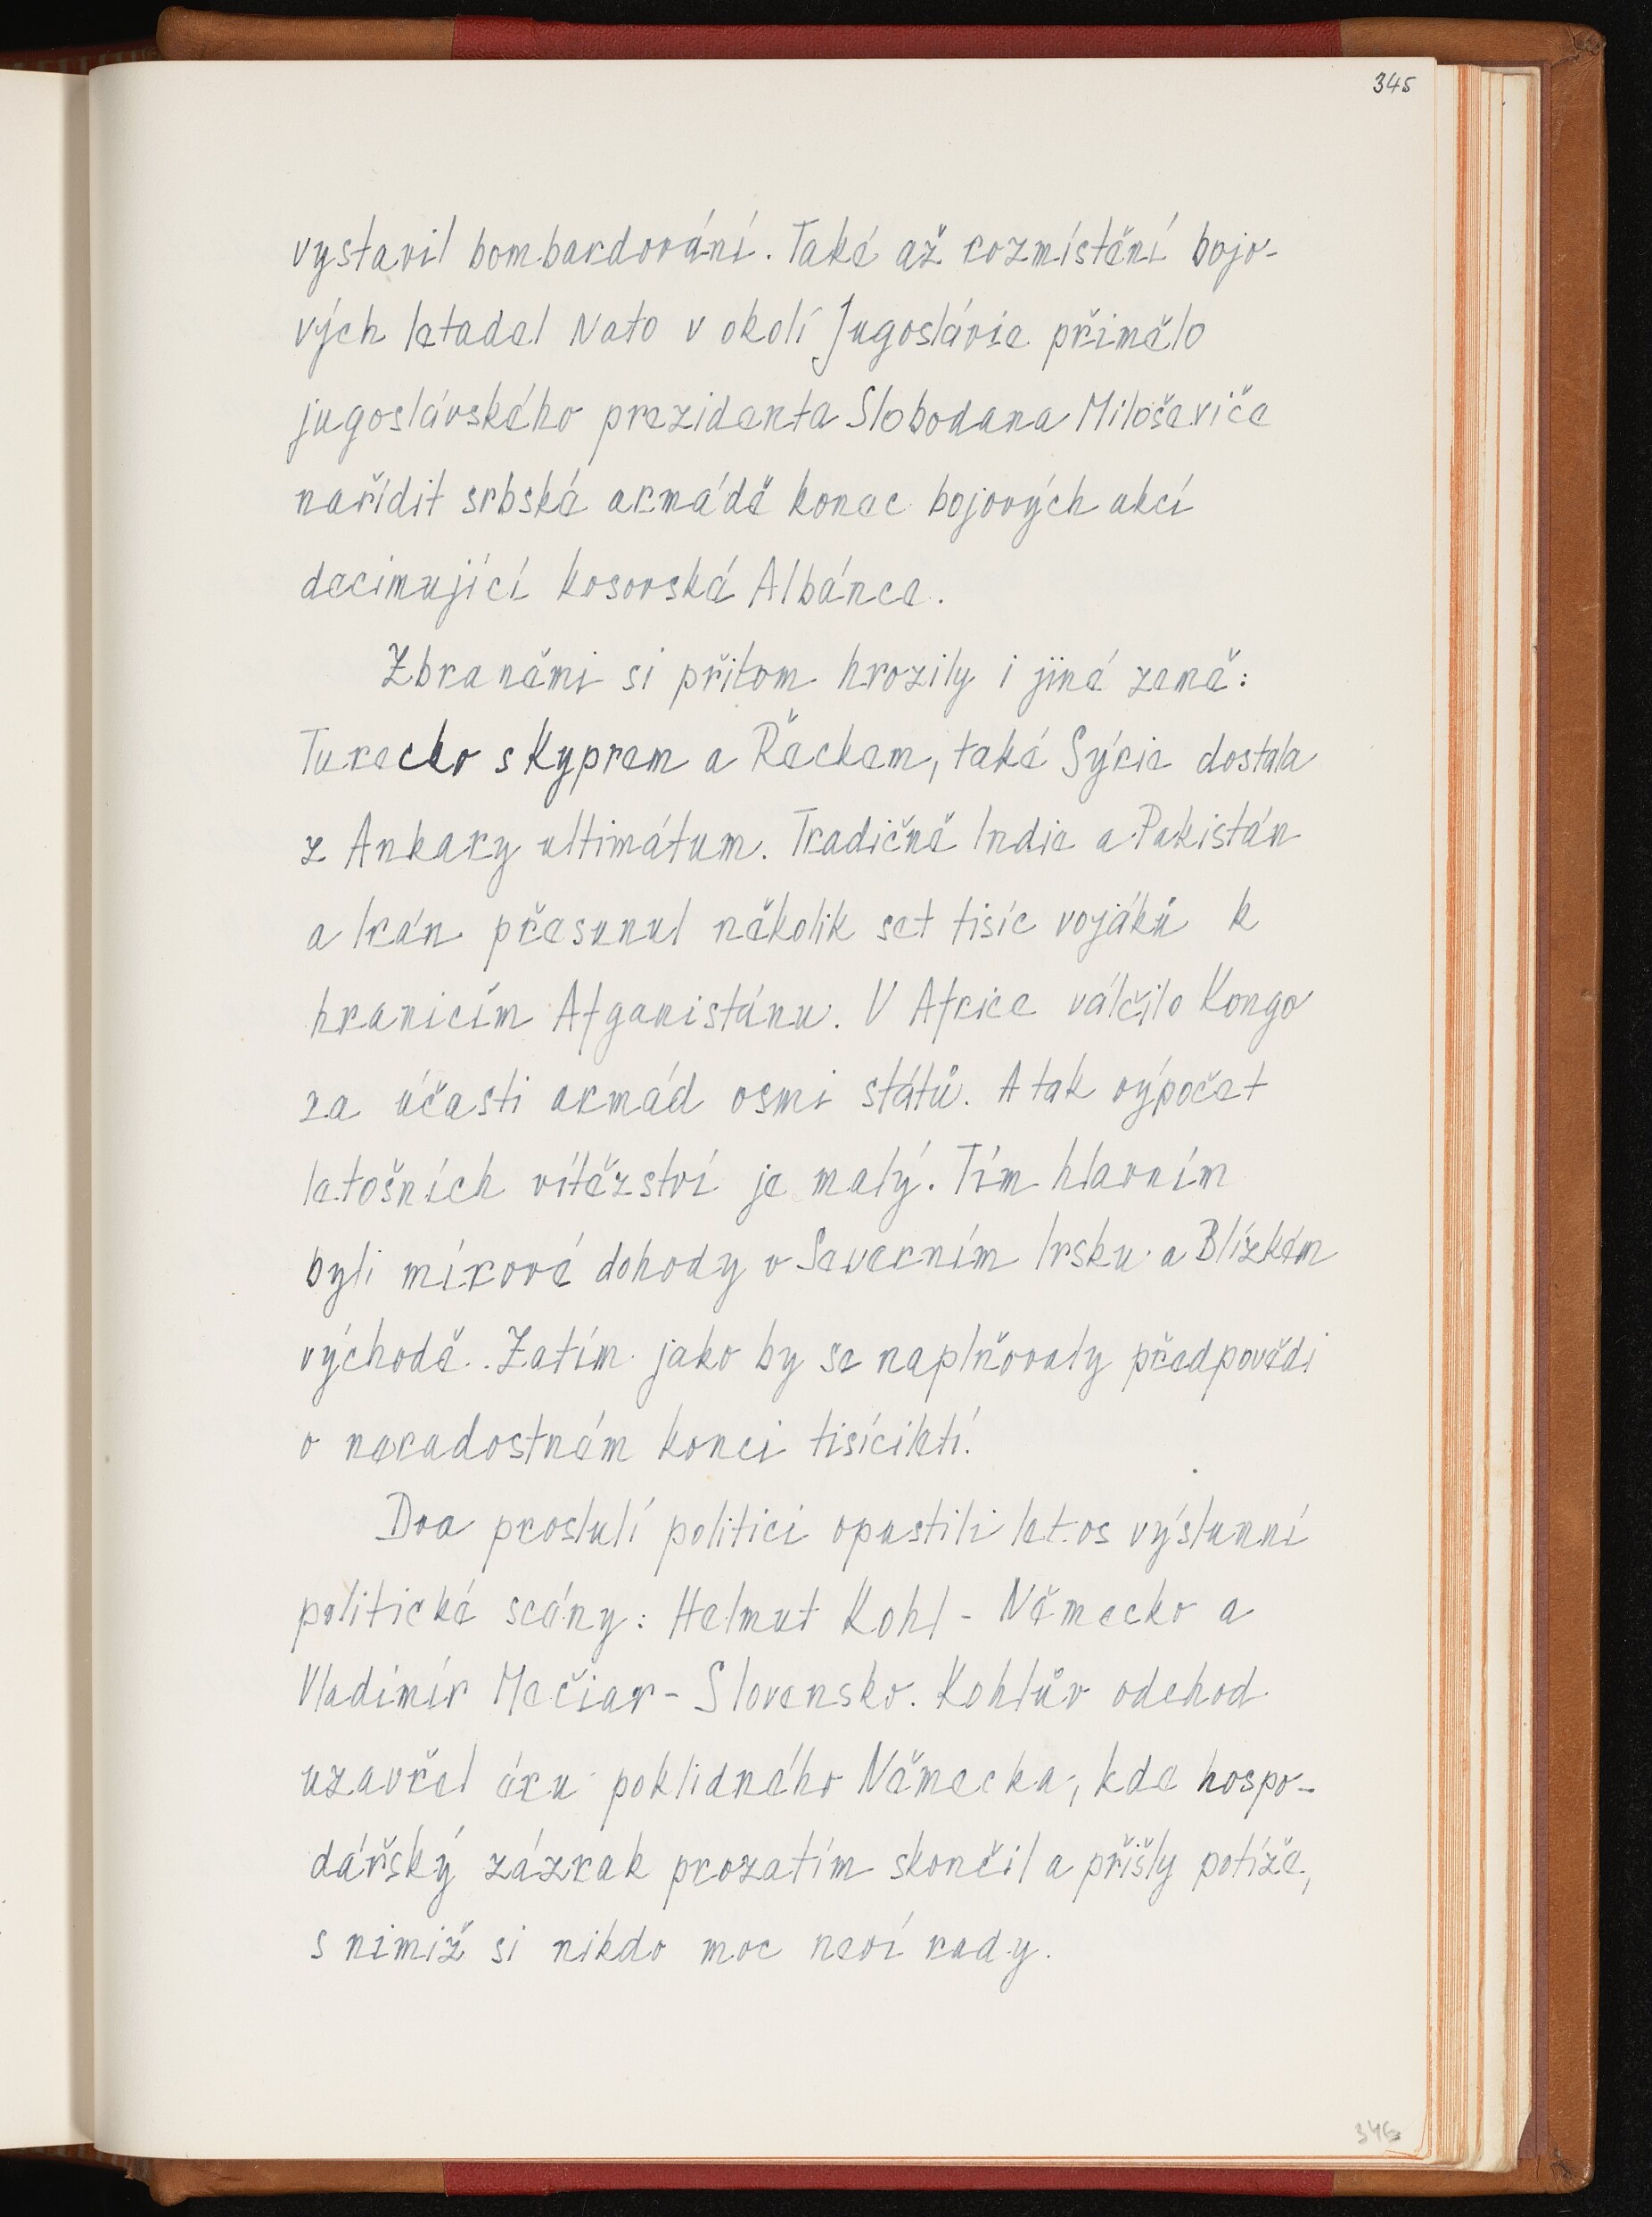 345
vystavil bombardování. Také až rozmístění bojo-
vých letadel Nato v okolí Jugoslávie přimělo
jugoslávského prezidenta Slobodana Miloševiče
nařídit srbské armádě konec bojových akcí
decimující kosovské Albánce.
Zbraněmi si přitom hrozily i jiné země:
Turecko s Kyprem a Řeckem, také Sýrie dostala
z Ankary ultimátum. Tradičně Indie a Pakistán
a Irán přesunul několik set tisíc vojáků k
hranicím Afganistánu. V Africe válčilo Kongo
za účasti armád osmi států. A tak výpočet
letošních vítězství je malý. Tím hlavním
byli mírové dohody v Severním Irsku a Blízkém
východě. Zatím jako by se naplňovaly předpovědi
o neradostném konci tisíciletí.
Dva proslulí politici opustili letos výslunní
politické scény: Helmut Kohl - Německo a
Vladimír Mečiar - Slovensko. Kohlův odchod
uzavřel éru poklidného Německa, kde hospo-
dářský zázrak prozatím skončil a přišly potíže,
s nimiž si nikdo moc neví rady.
346